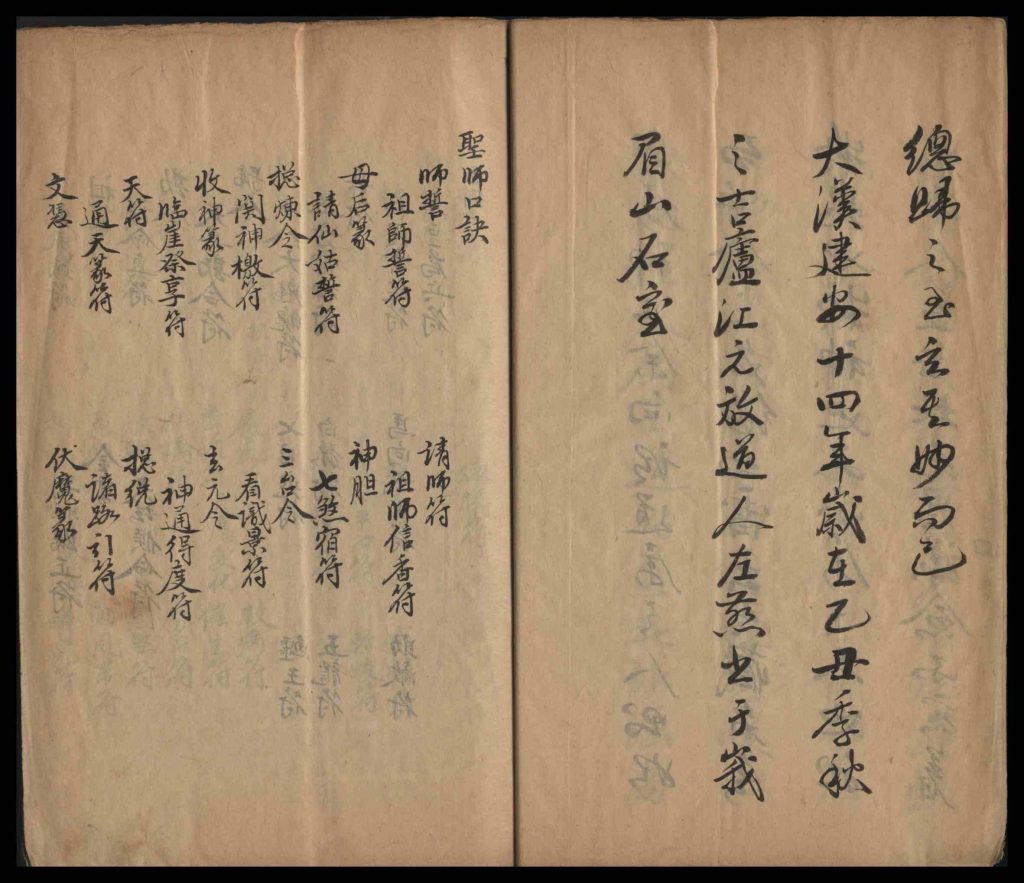 總歸之玄妙而已
大漢建安十四年歲在乙丑季秋
之吉廬江元放道人左慈书于峩
眉山石室
聖師口訣
師誓 請師符
祖師誓符 祖師信香符
母后篆 神胆
請仙姑誓符 七煞宿符
捴煉令 三台令
関神檄符 看識景符
收神篆 玄元令
臨崖祭享符 神通得度符
天符 捴統
通天篆符 諸路引符
文憑 伏魔篆